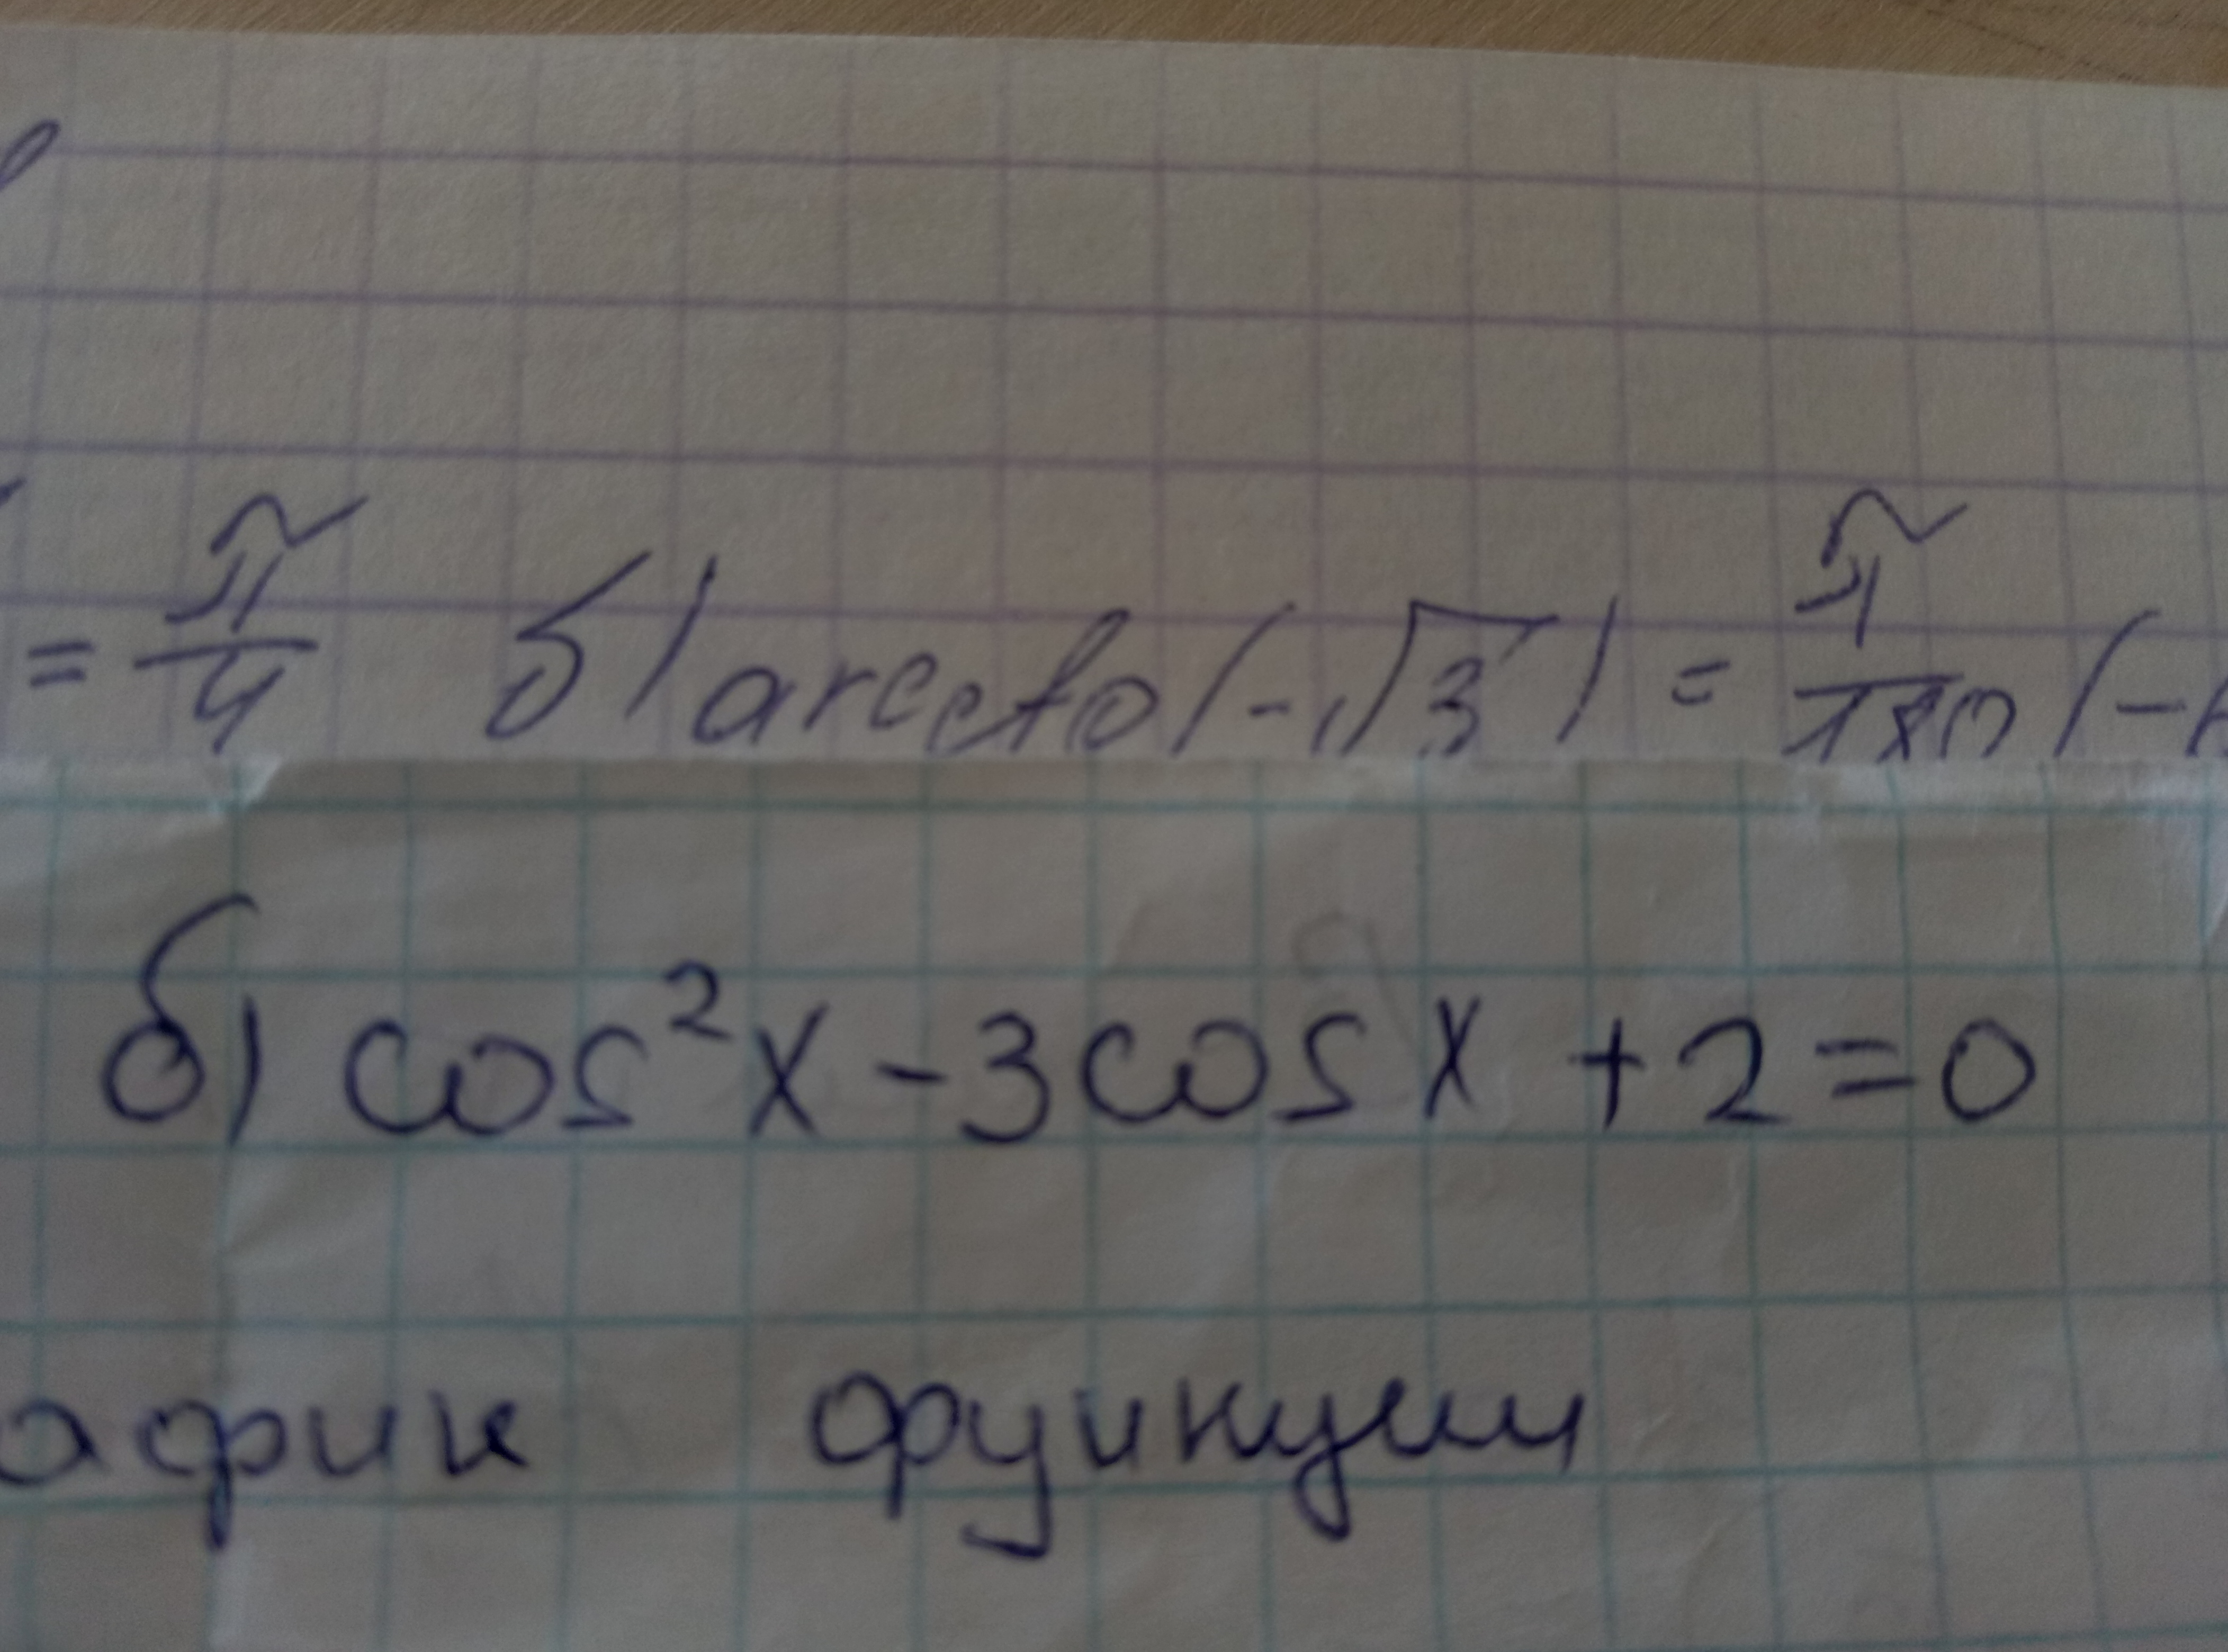 = π/4 б) arcctg(-√3) = π/180 (-6
б) cos²x - 3cosx + 2 = 0
афик функции